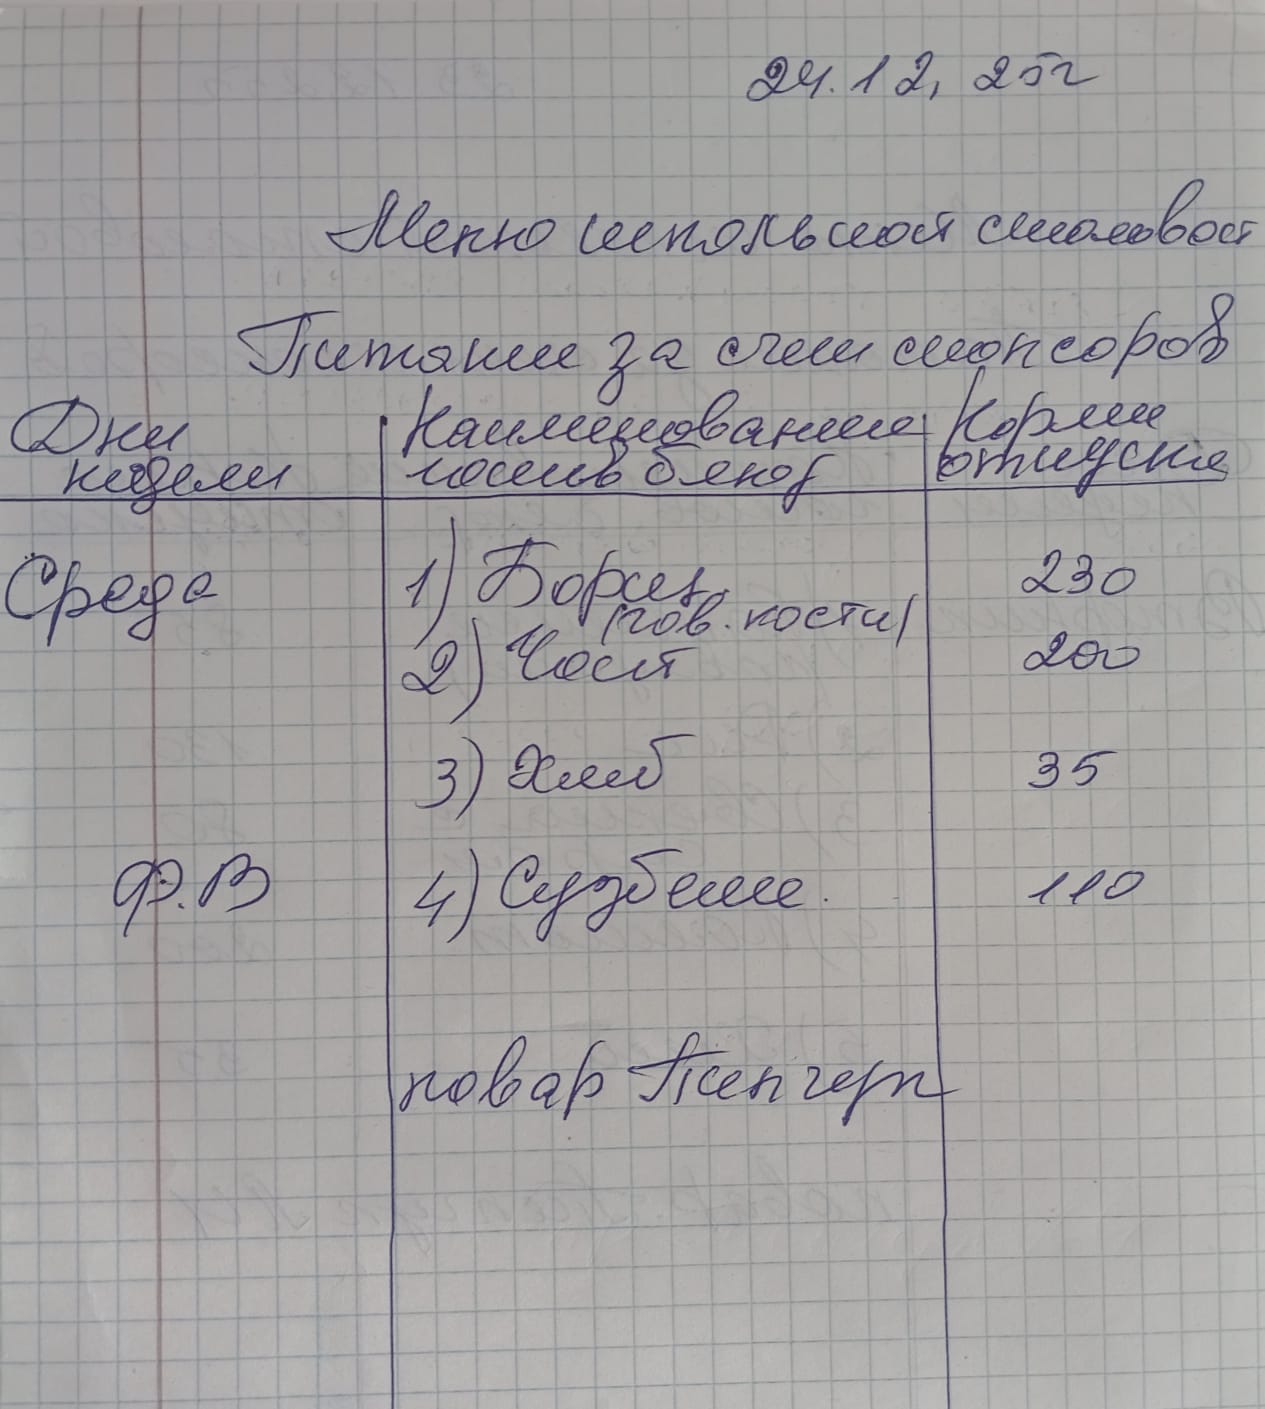 24.12, 25г
Меню школьной столовой
Питание за счет спонсоров
Дни недели
Наименование
Нормы отпуска
Среда
1) Борщ 230
(гов. кости)
2) Чай 200
3) Хлеб 35
Ф.В 4) Судбеле. 110
повар